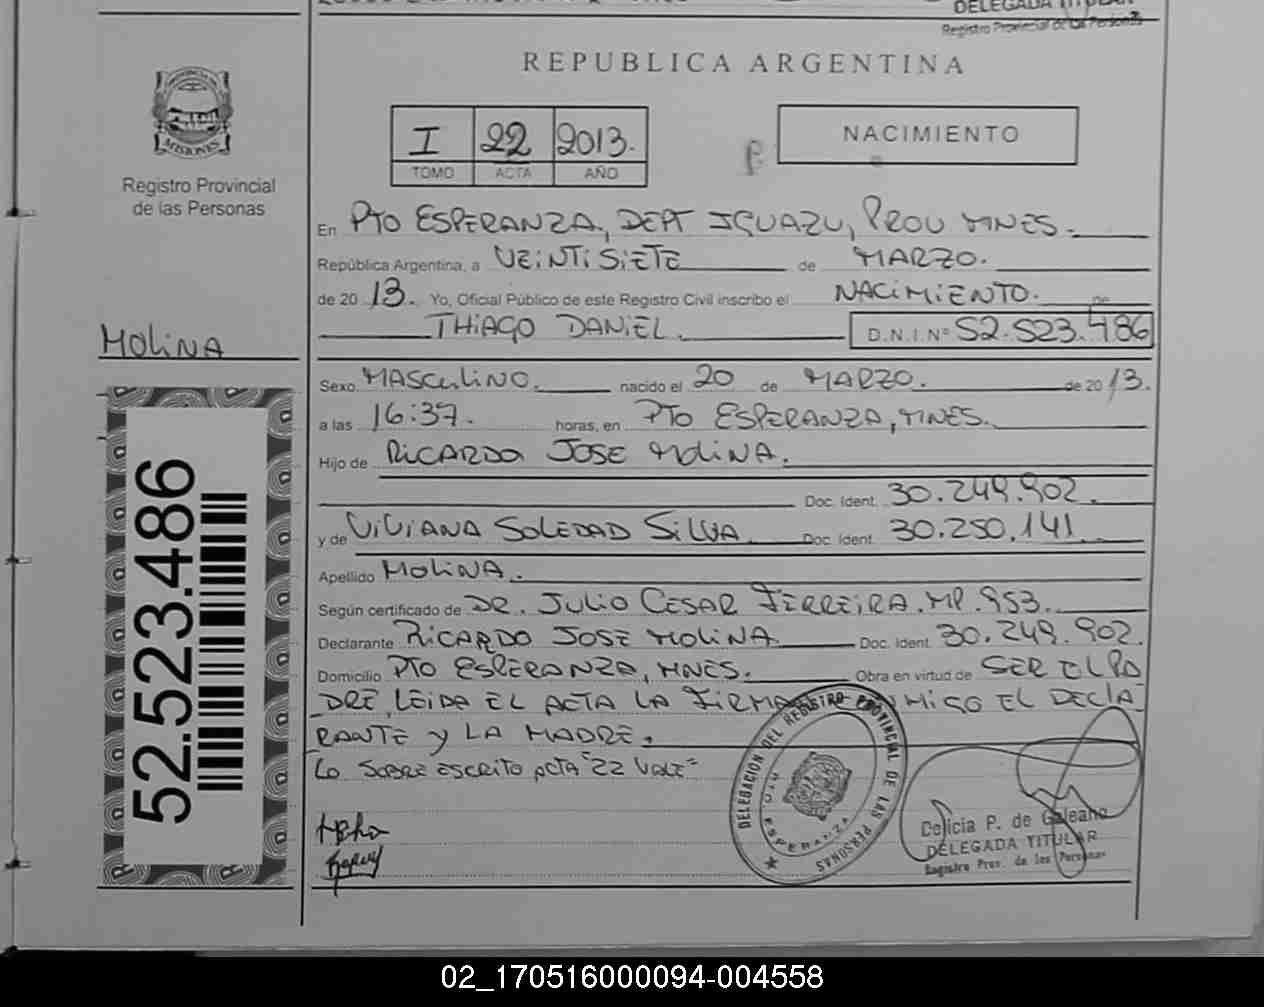 DELEGADA TITULAR
Registro Provincial de las Personas
REPUBLICA ARGENTINA
PROVINCIA DE
MISIONES
Registro Provincial
de las Personas
I 22 2013.
TOMO ACTA AÑO
NACIMIENTO
En PTO ESPERANZA, DEPT IGUAZU, PROV MNES.
República Argentina, a VEINTISIETE de MARZO.
de 20 13. Yo, Oficial Público de este Registro Civil inscribo el NACIMIENTO. de
THIAGO DANIEL. D.N.I.Nº 52.523.486
MOLINA
Sexo MASCULINO. nacido el 20 de MARZO. de 20 13.
a las 16:37. horas, en PTO ESPERANZA, MNES.
Hijo de RICARDO JOSE MOLINA.
Doc. Ident. 30.249.902.
y de VIVIANA SOLEDAD SILVA Doc. Ident. 30.250.141
Apellido MOLINA.
Según certificado de DR. JULIO CESAR FERREIRA. MP. 953.
Declarante RICARDO JOSE MOLINA Doc. Ident. 30.249.902.
Domicilio PTO ESPERANZA, MNES. Obra en virtud de SER EL PA
DRE LEIDA EL ACTA LA FIRMAN CONMIGO EL DECLA
RANTE y LA MADRE.
LO SOBRE ESCRITO ACTA "22 VALE"
52.523.486
DELEGACION DEL REGISTRO PROVINCIAL DE LAS PERSONAS
PTO ESPERANZA
Delicia P. de Galeano
DELEGADA TITULAR
Registro Prov. de las Personas
02_170516000094-004558